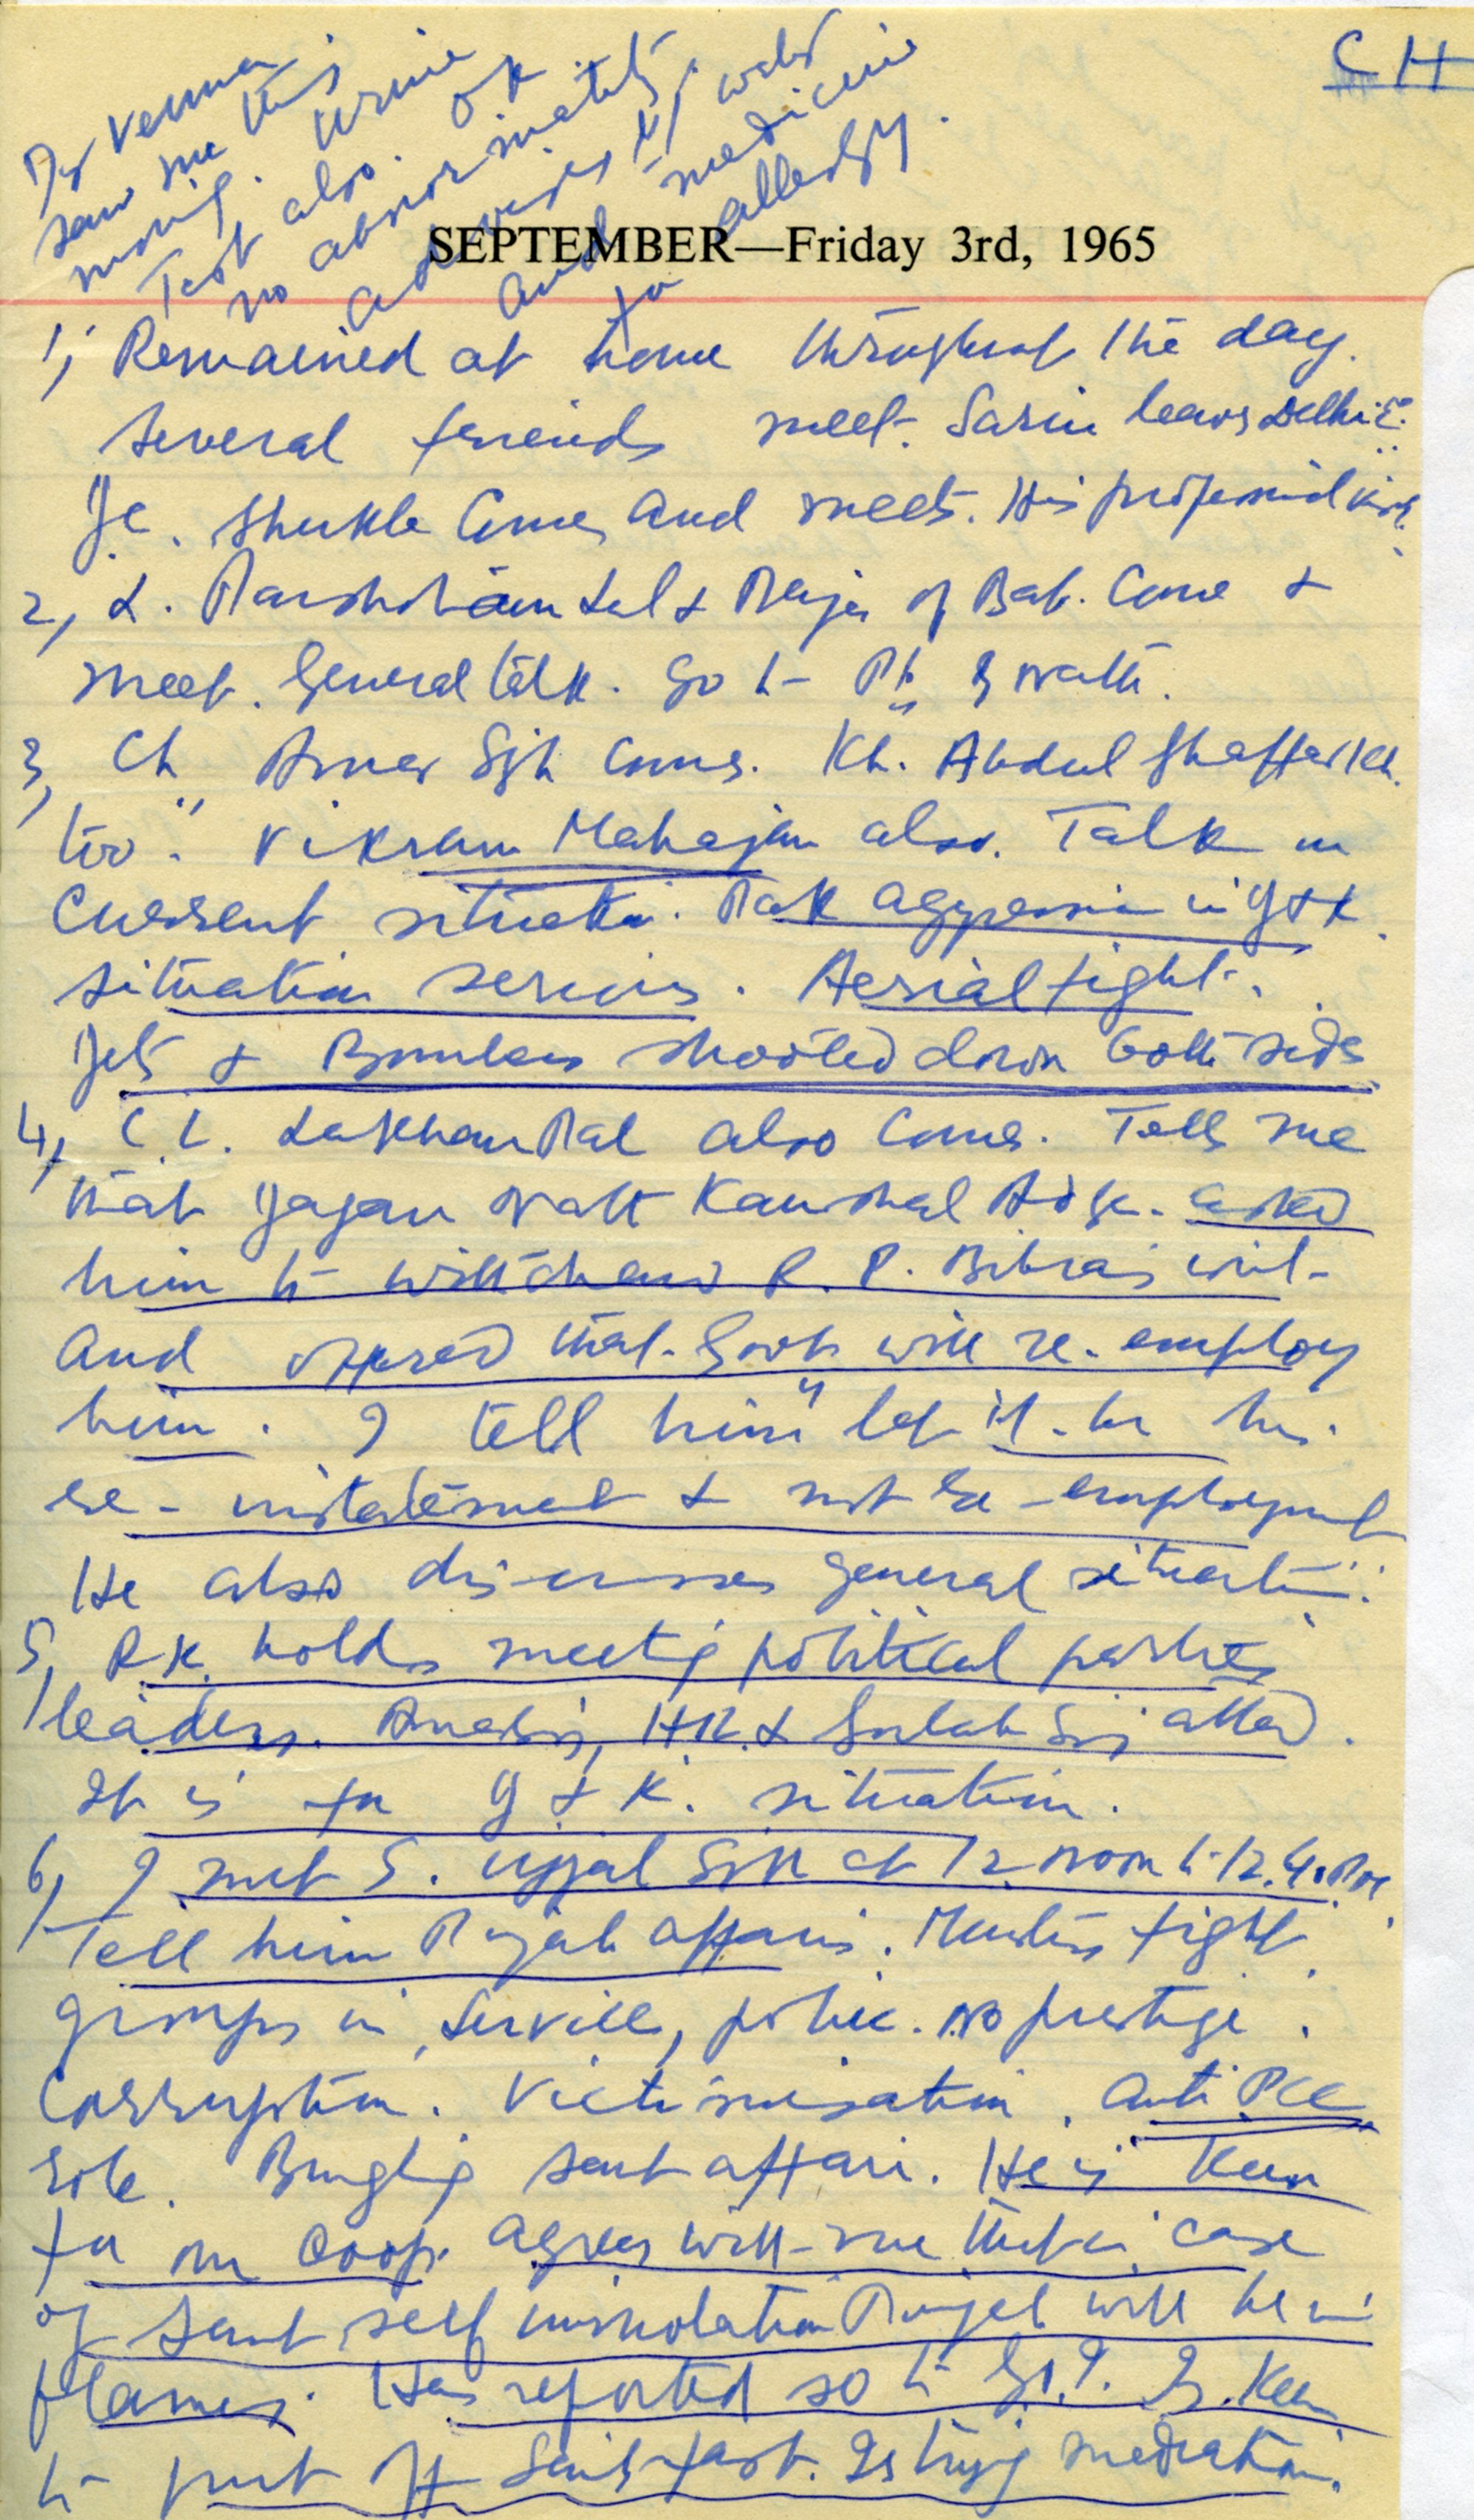 CH
Dr Verma
saw me this
morning. Urine
Test also. OK
no abnormality.
advises
and medicine
for allergy.
SEPTEMBER—Friday 3rd, 1965
1, Remained at home throughout the day.
Several friends meet. Sarin leaves Delhi
Shukla comes and meets. His
2, L. Lal & of Bab. Come &
meet. General talk. Go to
3, Ch Amar Sgh comes. Kh. Abdul Ghaffar Kh.
too. Vikram Mahajan also. Talk on
Current situation. Pak aggression in J & K.
Situation serious. Aerial fight.
Jets & Bombers shooted down both sides
4, C L. LakhanPal also comes. Tells me
that Jagan Nath Kaushal Adv. asked
him to withdraw R. P. writ
and offered that Govt will re-employ
him. I tell him let it be his
re-instatement & not re-employment
He also discusses general situation.
5, R.K. holds meeting political parties
leaders. H.R. & Gulab Sgh attend.
It is for J & K. situation.
6, I met S. Ujjal Sgh at 12 noon to 12.40 PM
Tell him Punjab affairs. Ministers fight
groups in Service, police. no prestige.
Corruption. Victimisation. Anti PCC
role. Bungling Sant affair. He is keen
for our coop. Agrees with me that in case
of Sant self immolation Punjab will be in
flames. Has reported so to G.I. Is keen
to put off Sant's fast. Is trying mediation.